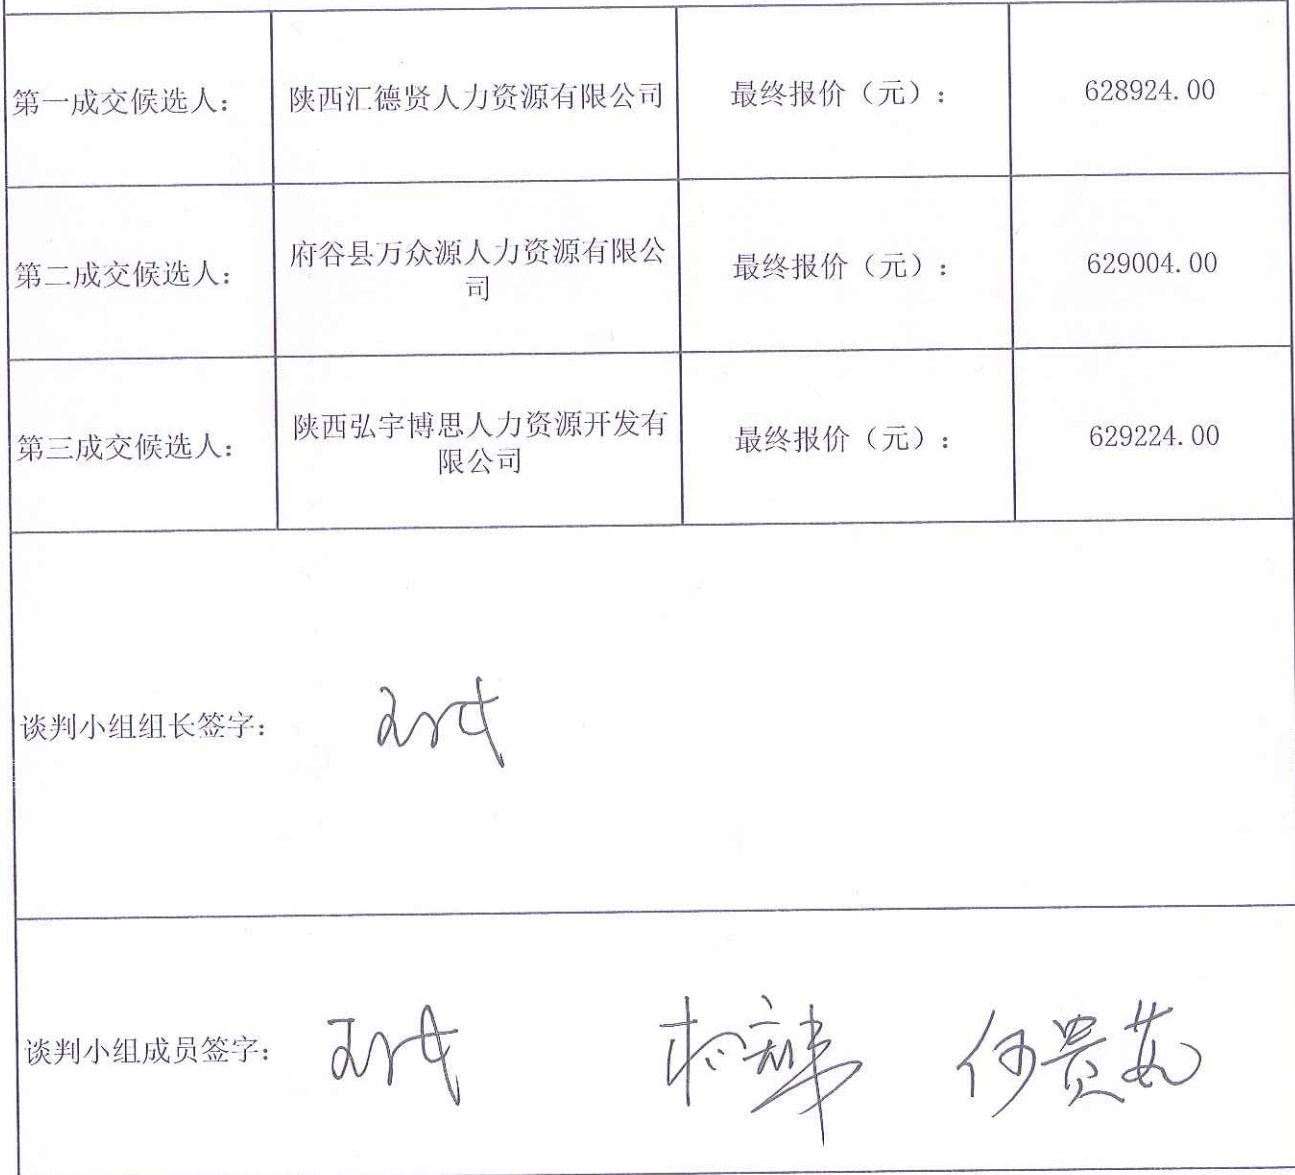 第一成交候选人： 陕西汇德贤人力资源有限公司 最终报价（元）： 628924.00
第二成交候选人： 府谷县万众源人力资源有限公
司 最终报价（元）： 629004.00
第三成交候选人： 陕西弘宇博思人力资源开发有
限公司 最终报价（元）： 629224.00
谈判小组组长签字：
谈判小组成员签字： 何贵